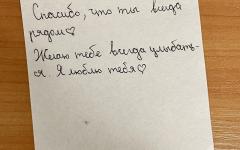 Спасибо, что ты всегда
рядом♡
Желаю тебе всегда улыбать-
ся. Я люблю тебя♡